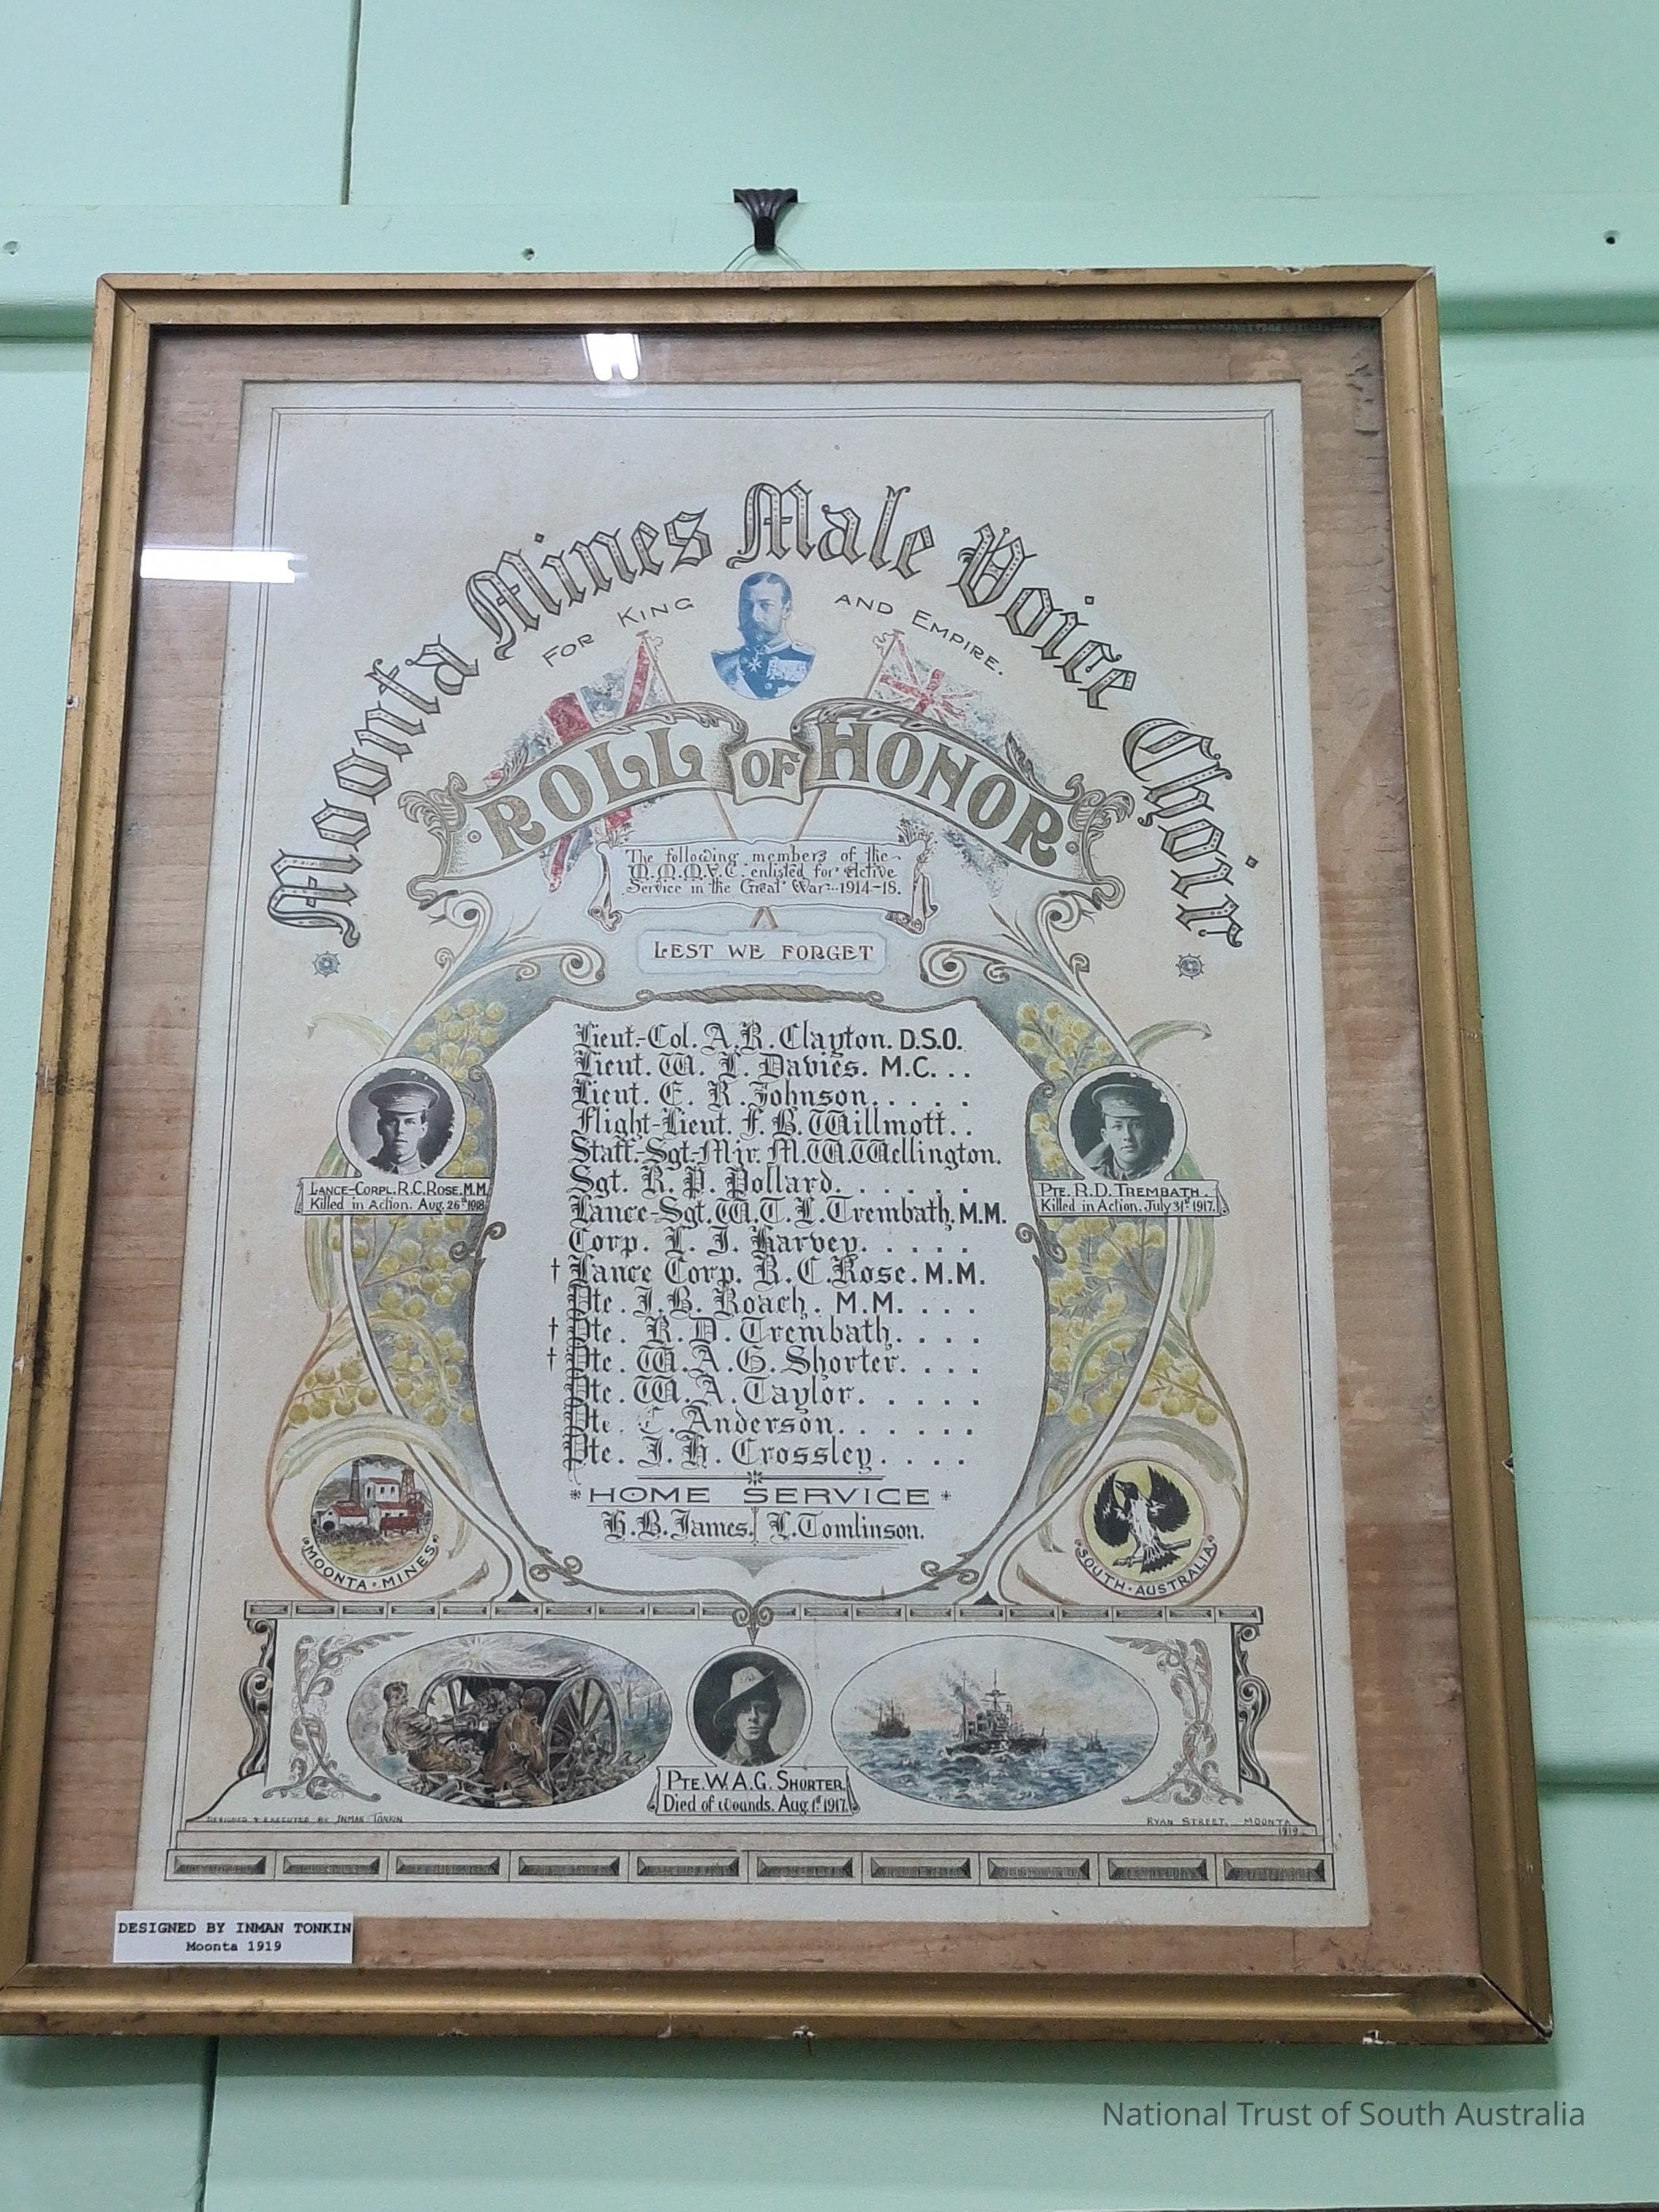 Moonta Mines Male Voice Choir
FOR KING AND EMPIRE.
ROLL OF HONOR
The following members of the
M.M.M.V.C. enlisted for Active
Service in the Great War 1914-18.
LEST WE FORGET
Lieut.-Col. A.R. Clayton. D.S.O.
Lieut. W. L. Davies. M.C. . .
Lieut. E. R. Johnson. . . . .
Flight-Lieut. F. B. Willmott. .
Staff.-Sgt.-Mjr. M.W. Wellington.
Sgt. R. P. Pollard. . . . . .
Lance-Sgt. W.T.L. Trembath. M.M.
Corp. L. J. Harvey. . . . .
† Lance Corp. R.C. Rose. M.M.
Pte. J.B. Roach. M.M. . . .
† Pte. R. D. Trembath. . . .
† Pte. W.A.G. Shorter. . . .
Pte. W.A. Taylor. . . . .
Pte. C. Anderson. . . . . .
Pte. J. H. Crossley. . . .
HOME SERVICE
H.B. James. L. Tomlinson.
LANCE-CORPL. R.C. ROSE. M.M.
Killed in Action. Aug. 26th 1918
PTE. R.D. TREMBATH.
Killed in Action. July 31st 1917.
MOONTA·MINES
SOUTH·AUSTRALIA
PTE. W.A.G. SHORTER.
Died of wounds. Aug. 1st 1917.
DESIGNED & EXECUTED BY INMAN TONKIN
RYAN STREET, MOONTA
1919
DESIGNED BY INMAN TONKIN
Moonta 1919
National Trust of South Australia